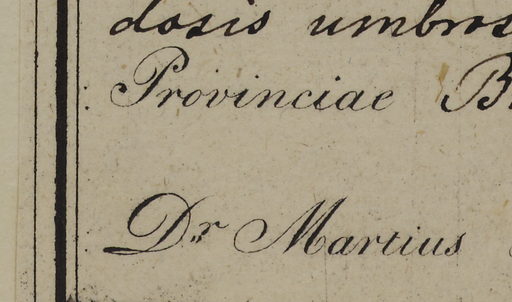 dosis umbros
Provinciae B
Dr Martius